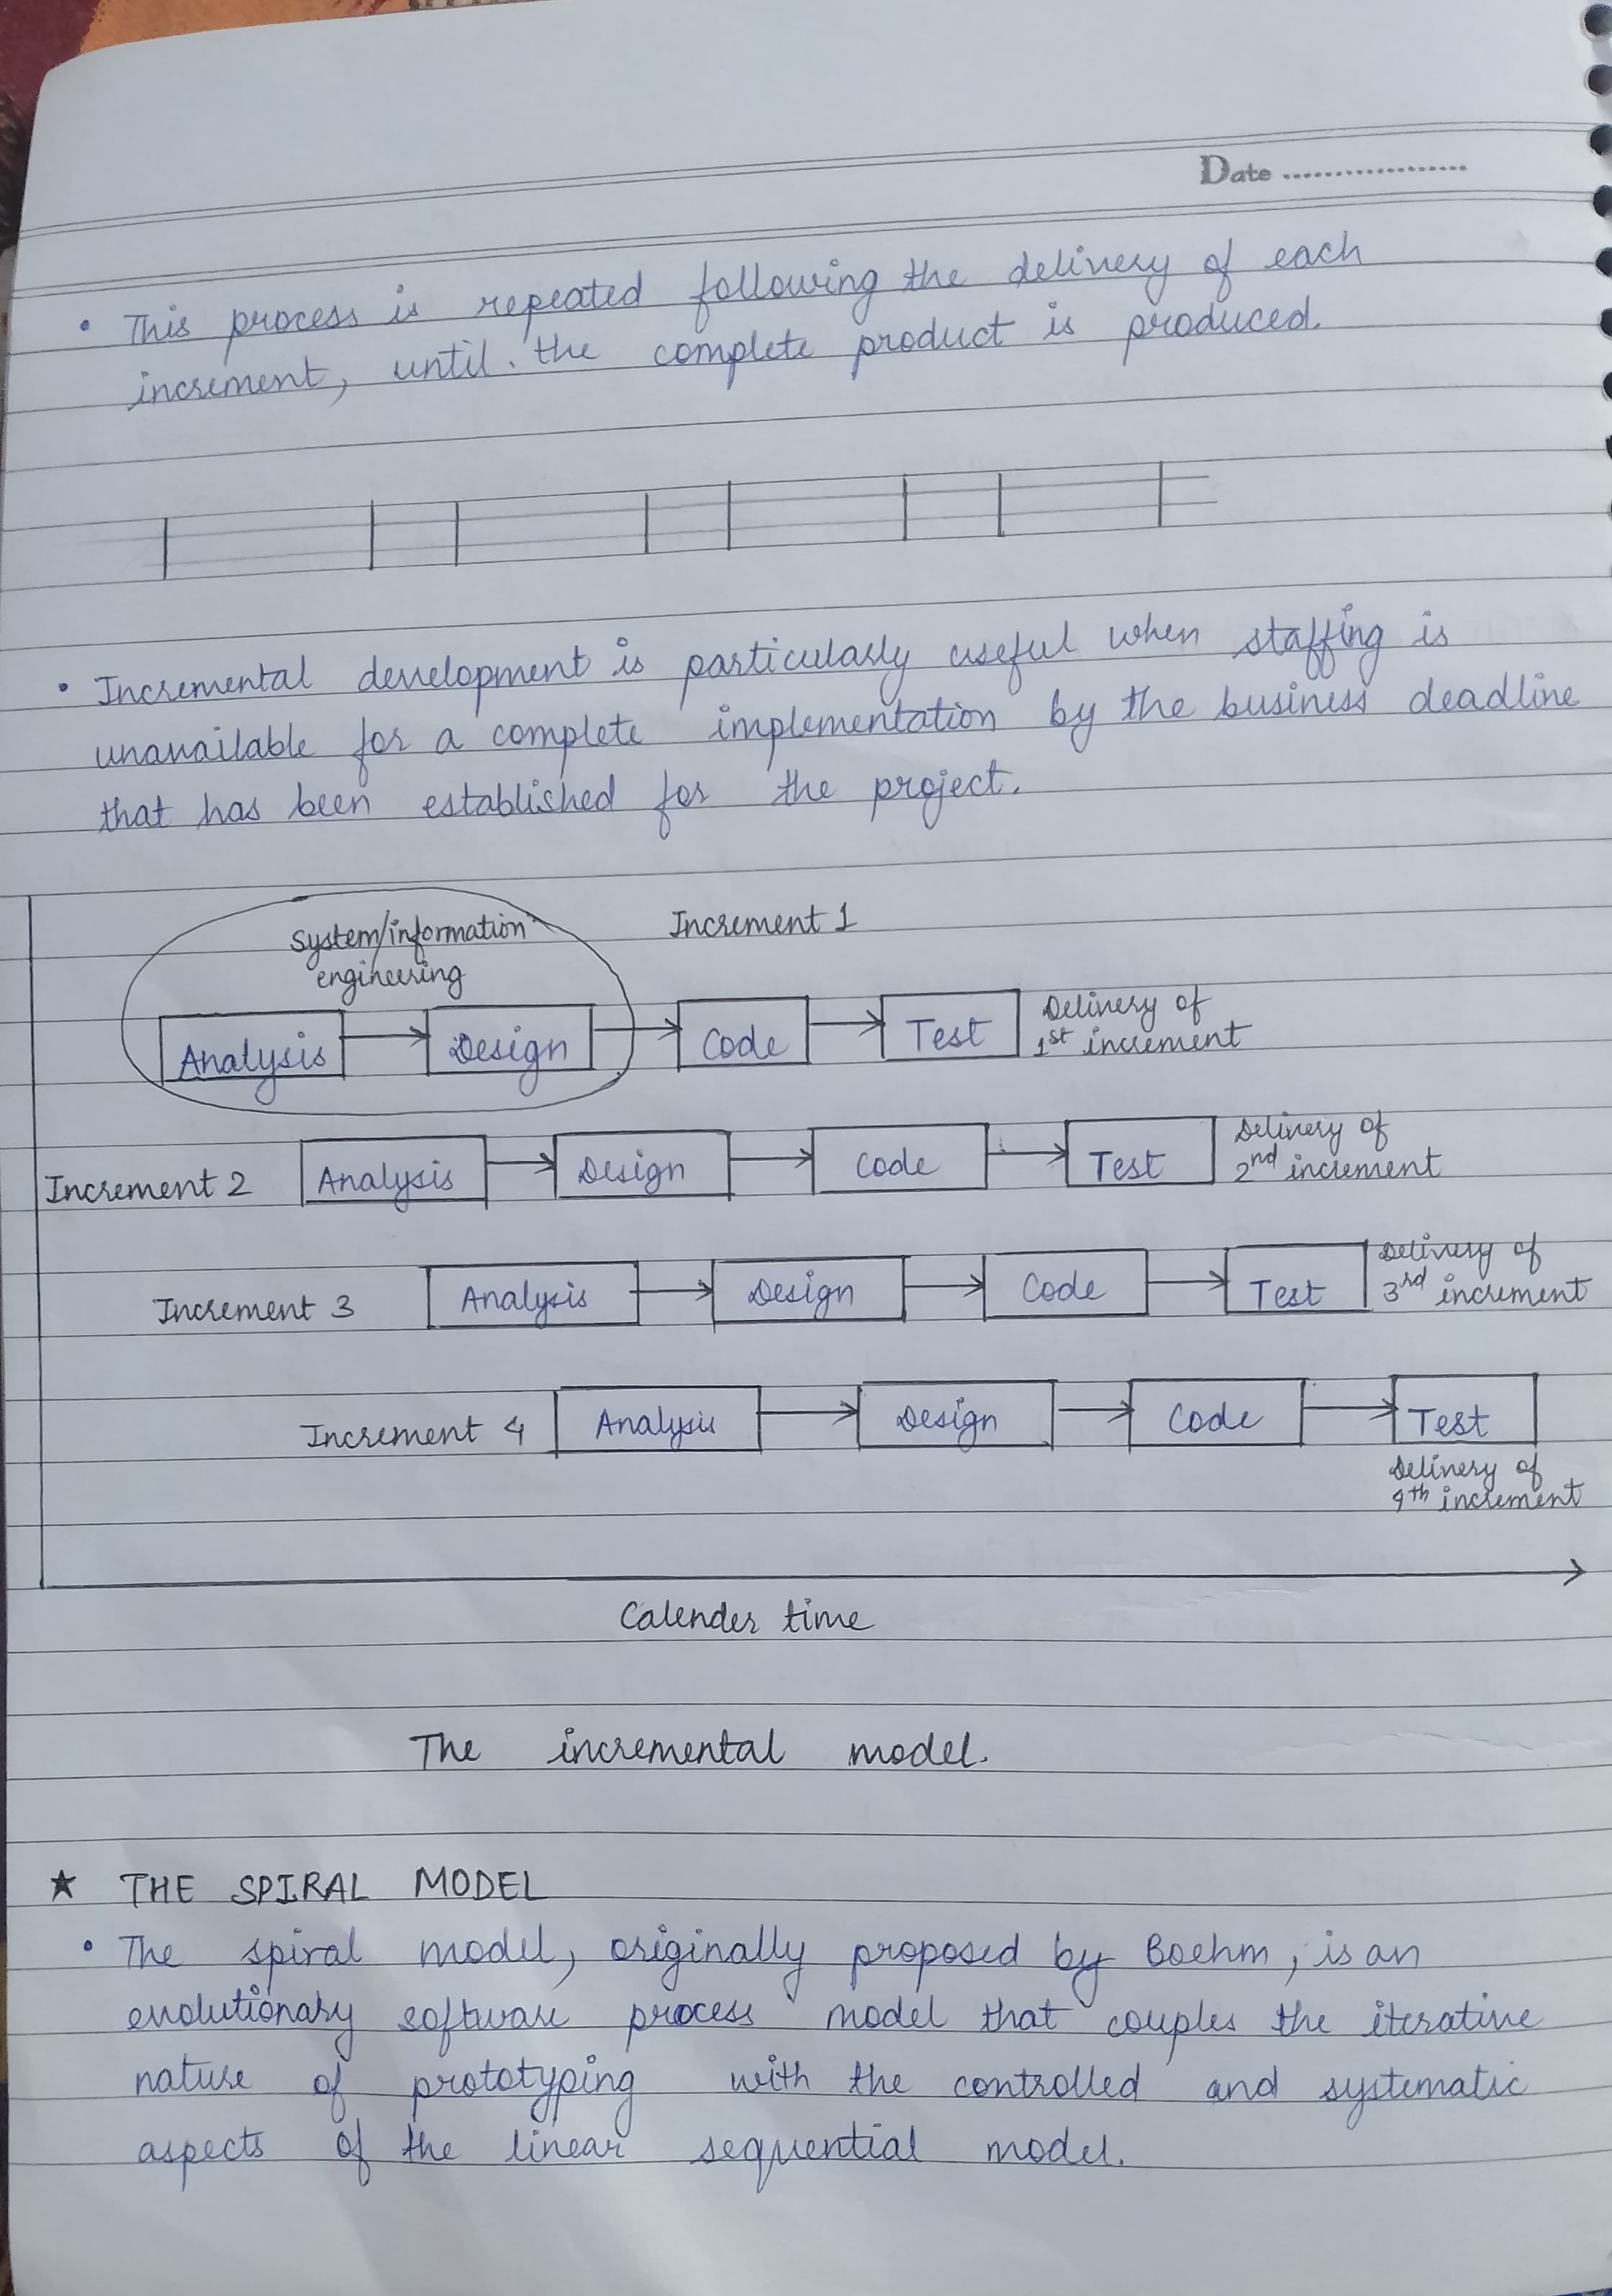 Date ....................
• This process is repeated following the delivery of each
increment, until. the complete product is produced.
• Incremental development is particularly useful when staffing is
unavailable for a complete implementation by the business deadline
that has been established for the project.
System/information
engineering
Increment 1
Analysis Design Code Test
Delivery of
1st increment
Increment 2 Analysis Design Code Test
Delivery of
2nd increment
Increment 3 Analysis Design Code Test
Delivery of
3rd increment
Increment 4 Analysis Design Code Test
Delivery of
4th increment
Calender time
The incremental model.
★ THE SPIRAL MODEL
• The spiral model, originally proposed by Boehm, is an
evolutionary software process model that couples the iterative
nature of prototyping with the controlled and systematic
aspects of the linear sequential model.